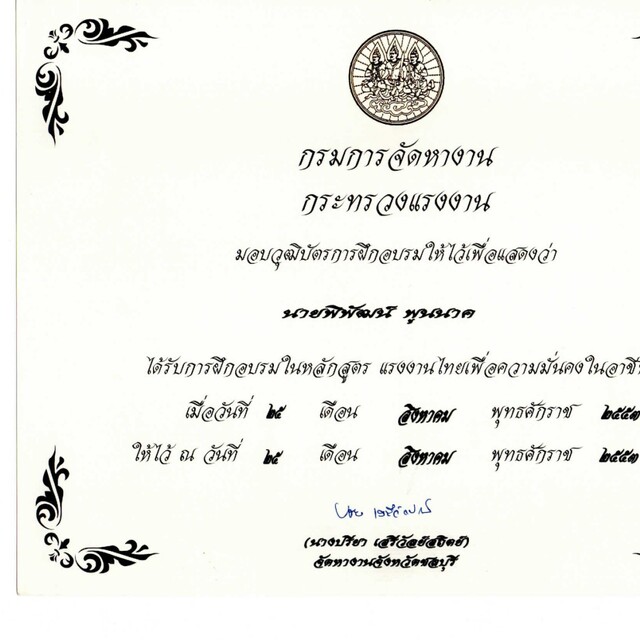 กรมการจัดหางาน
กระทรวงแรงงาน
มอบวุฒิบัตรการฝึกอบรมให้ไว้เพื่อแสดงว่า
นายพิพัฒน์ พูนนาค
ได้รับการฝึกอบรมในหลักสูตร แรงงานไทยเพื่อความมั่นคงในอาชี
เมื่อวันที่ ๒๕ เดือน สิงหาคม พุทธศักราช ๒๕๕๓
ให้ไว้ ณ วันที่ ๒๕ เดือน สิงหาคม พุทธศักราช ๒๕๕๓
(นางปริยา เสรีวัลย์สถิตย์)
จัดหางานจังหวัดชลบุรี